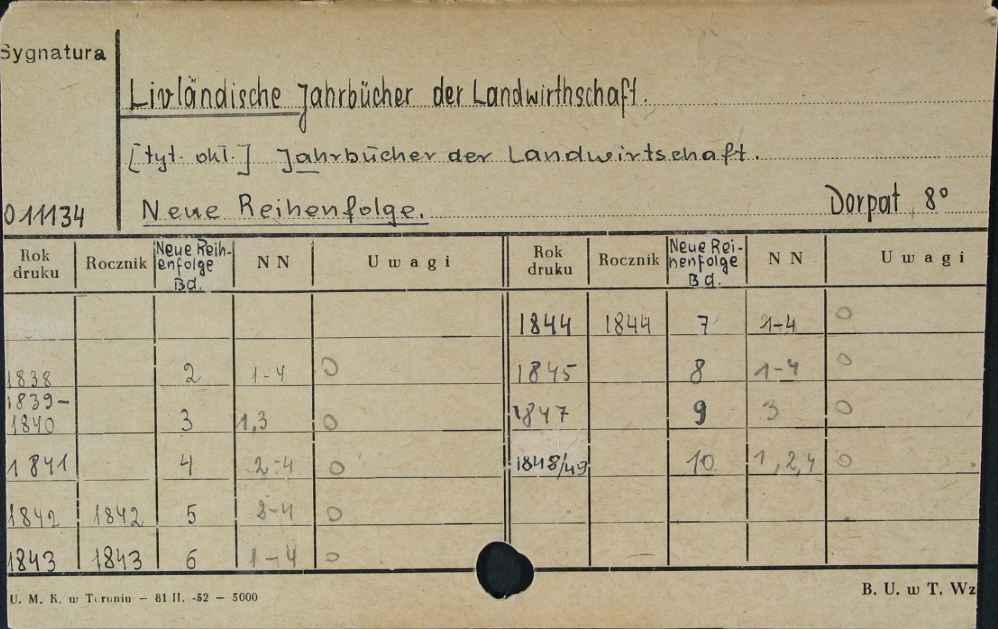 Sygnatura
Livländische Jahrbücher der Landwirthschaft.
[tyt. okł.] Jahrbücher der Landwirtschaft.
011134 Neue Reihenfolge. Dorpat 8°
Rok druku Rocznik Neue Reih-enfolge Bd. NN Uwagi Rok druku Rocznik Neue Rei-henfolge Bd. NN Uwagi
1844 1844 7 1-4 0
1838 2 1-4 0 1845 8 1-4 0
1839-1840 3 1,3 0 1847 9 3 0
1841 4 2-4 0 1848/49 10 1,2,4 0
1842 1842 5 2-4 0
1843 1843 6 1-4 0
U. M. K. w Toruniu — 81 II. -52 — 5000 B. U. w T. Wz